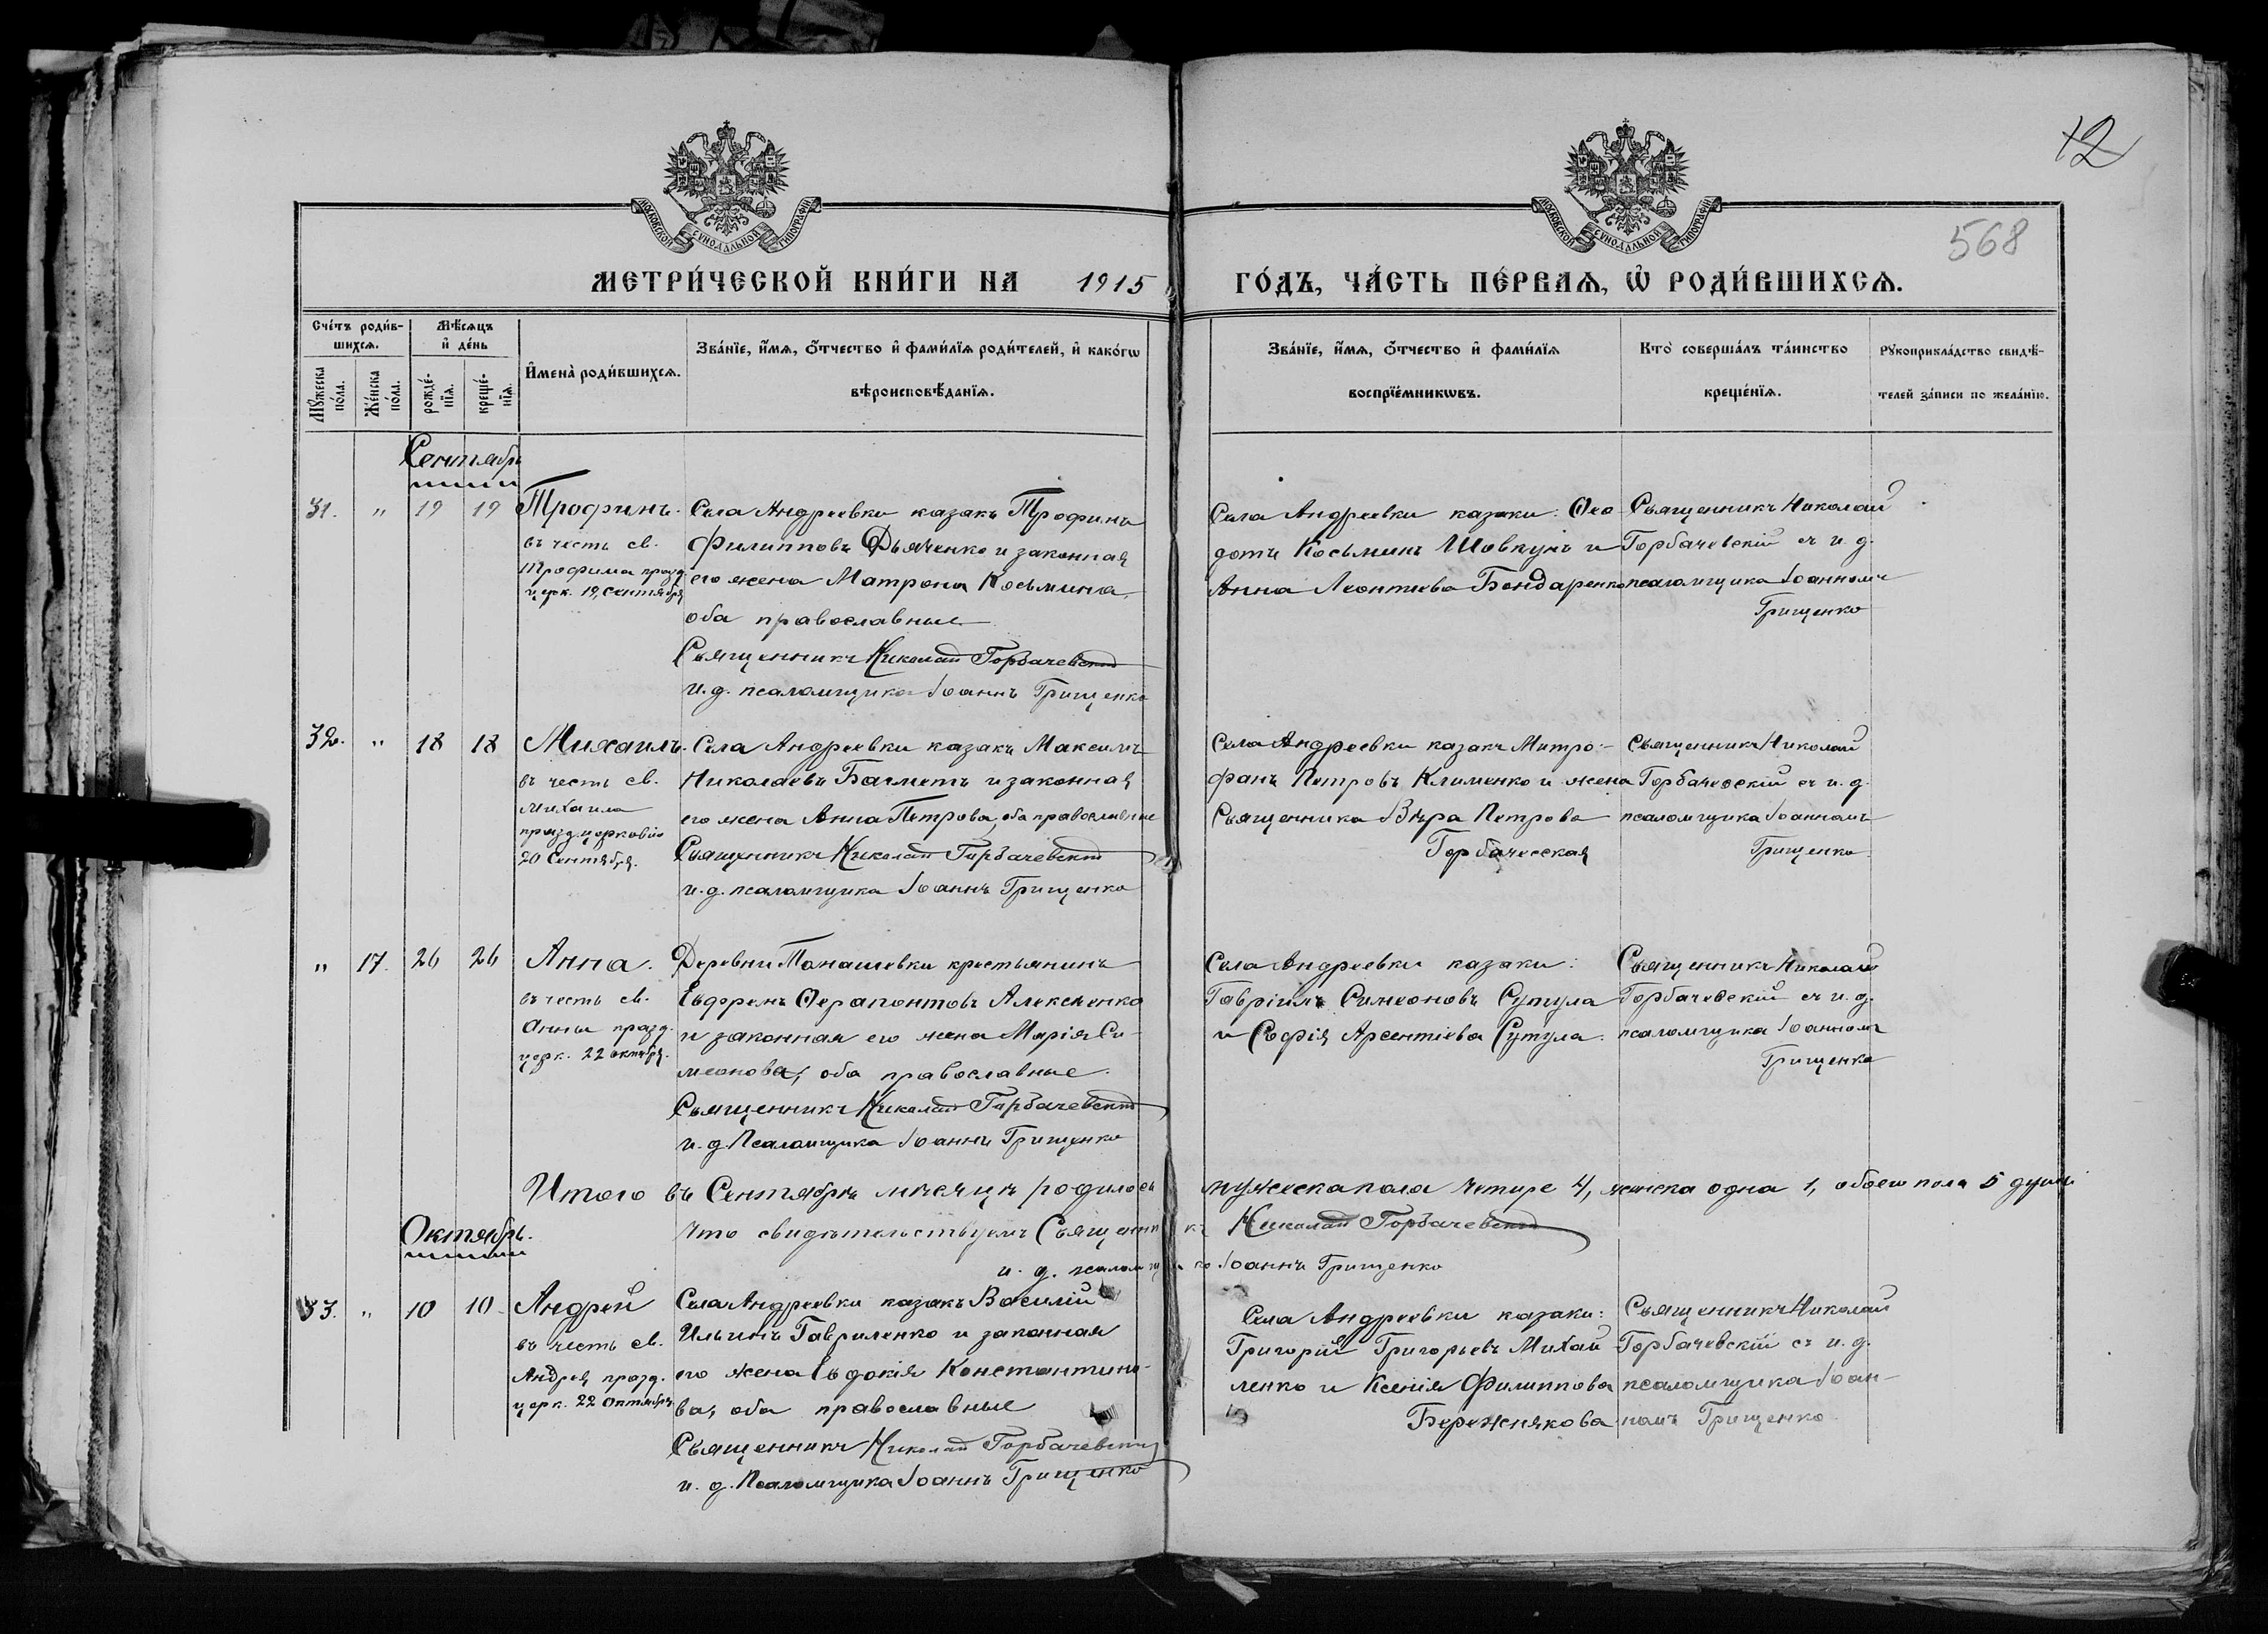 12
568
МОСКОВСКОЙ СУНОДАЛЬНОЙ ТИПОГРАФІИ
МОСКОВСКОЙ СУНОДАЛЬНОЙ ТИПОГРАФІИ
МЕТРИ́ЧЕСКОЙ КНИ́ГИ НА 1915
ГО́ДЪ, ЧА́СТЬ ПЕ́РВАѦ, Ѡ҆ РОДИ́ВШИХСѦ.
Сче́тъ роди́в-
шихсѧ.
Мꙋ́жеска по́ла.
Же́нска по́ла.
Мѣ́сѧцъ
и҆ де́нь
рожде́-
нїѧ.
креще́-
нїѧ.
И҆мена̀ роди́вшихсѧ.
Зва́нїе, и҆́мѧ, ѻ҆́тчество и҆ фами́лїѧ роди́телей, и҆ како́гѡ
вѣроисповѣ́данїѧ.
Зва́нїе, и҆́мѧ, ѻ҆́тчество и҆ фами́лїѧ
воспрїе́мникѡвъ.
Кто̀ соверша́лъ та́инство
креще́нїѧ.
Рꙋкоприкла́дство свидѣ́-
телей за́писи по жела́нїю.
Сентябрь
31. " 19 19 Трофимъ.
въ честь св.
Трофима празд.
церк. 19, сентября
Села Андреевки казакъ Трофимъ
Филипповъ Дьяченко и законная
его жена Матрона Косьмина,
оба православные
Священникъ Николай Горбачевскій
и. д. псаломщика Іоаннъ Грищенко
Села Андреевки казаки: Ѳео
дотъ Косьминъ Шовкунъ и
Анна Леонтиева Бондаренко
Священникъ Николай
Горбачевскій съ и. д.
псаломщика Іоанномъ
Грищенко
32. " 18 18 Михаилъ.
въ честь св.
Михаила
празд. церковію
20 Сентября.
Села Андреевки казакъ Максимъ
Николаевъ Багметъ и законная
его жена Анна Петрова, оба православные
Священникъ Николай Горбачевскій
и. д. псаломщика Іоаннъ Грищенко
Села Андреевки казакъ Митро-
фанъ Петровъ Клименко и жена
Священника Вѣра Петрова
Горбачевская
Священникъ Николай
Горбачевскій съ и. д.
псаломщика Іоанномъ
Грищенко.
" 17. 26 26 Анна.
въ честь св.
Анны празд.
церк. 22 октября.
Деревни Танашевки крестьянинъ
Евфремъ Ѳерапонтовъ Алексеенко
и законная его жена Марія Си-
меонова, оба православные.
Священникъ Николай Горбачевскій
и. д. Псаломщика Іоаннъ Грищенко
Села Андреевки казаки:
Гавріилъ Симеоновъ Сутула
и Софія Арсентіева Сутула.
Священникъ Николай
Горбачевскій съ и. д.
псаломщика Іоанномъ
Грищенко
Итого въ Сентябрѣ мѣсяцѣ родилось мужеска пола четыре 4, женска одна 1, обоего пола 5 душъ
что свидѣтельствуемъ Священникъ Николай Горбачевскій
и. д. псаломщика Іоаннъ Грищенко
Октябрь.
33. " 10 10 Андрей
въ честь св.
Андрея празд.
церк. 22 Октября
Села Андреевки казакъ Василій
Ильинъ Гавриленко и законная
его жена Евдокія Константино-
ва, оба православные
Священникъ Николай Горбачевскій
и. д. Псаломщика Іоаннъ Грищенко
Села Андреевки казаки:
Григорій Григорьевъ Михай
ленко и Ксенія Филиппова
Бережнякова
Священникъ Николай
Горбачевскій съ и. д.
псаломщика Іоан-
номъ Грищенко.